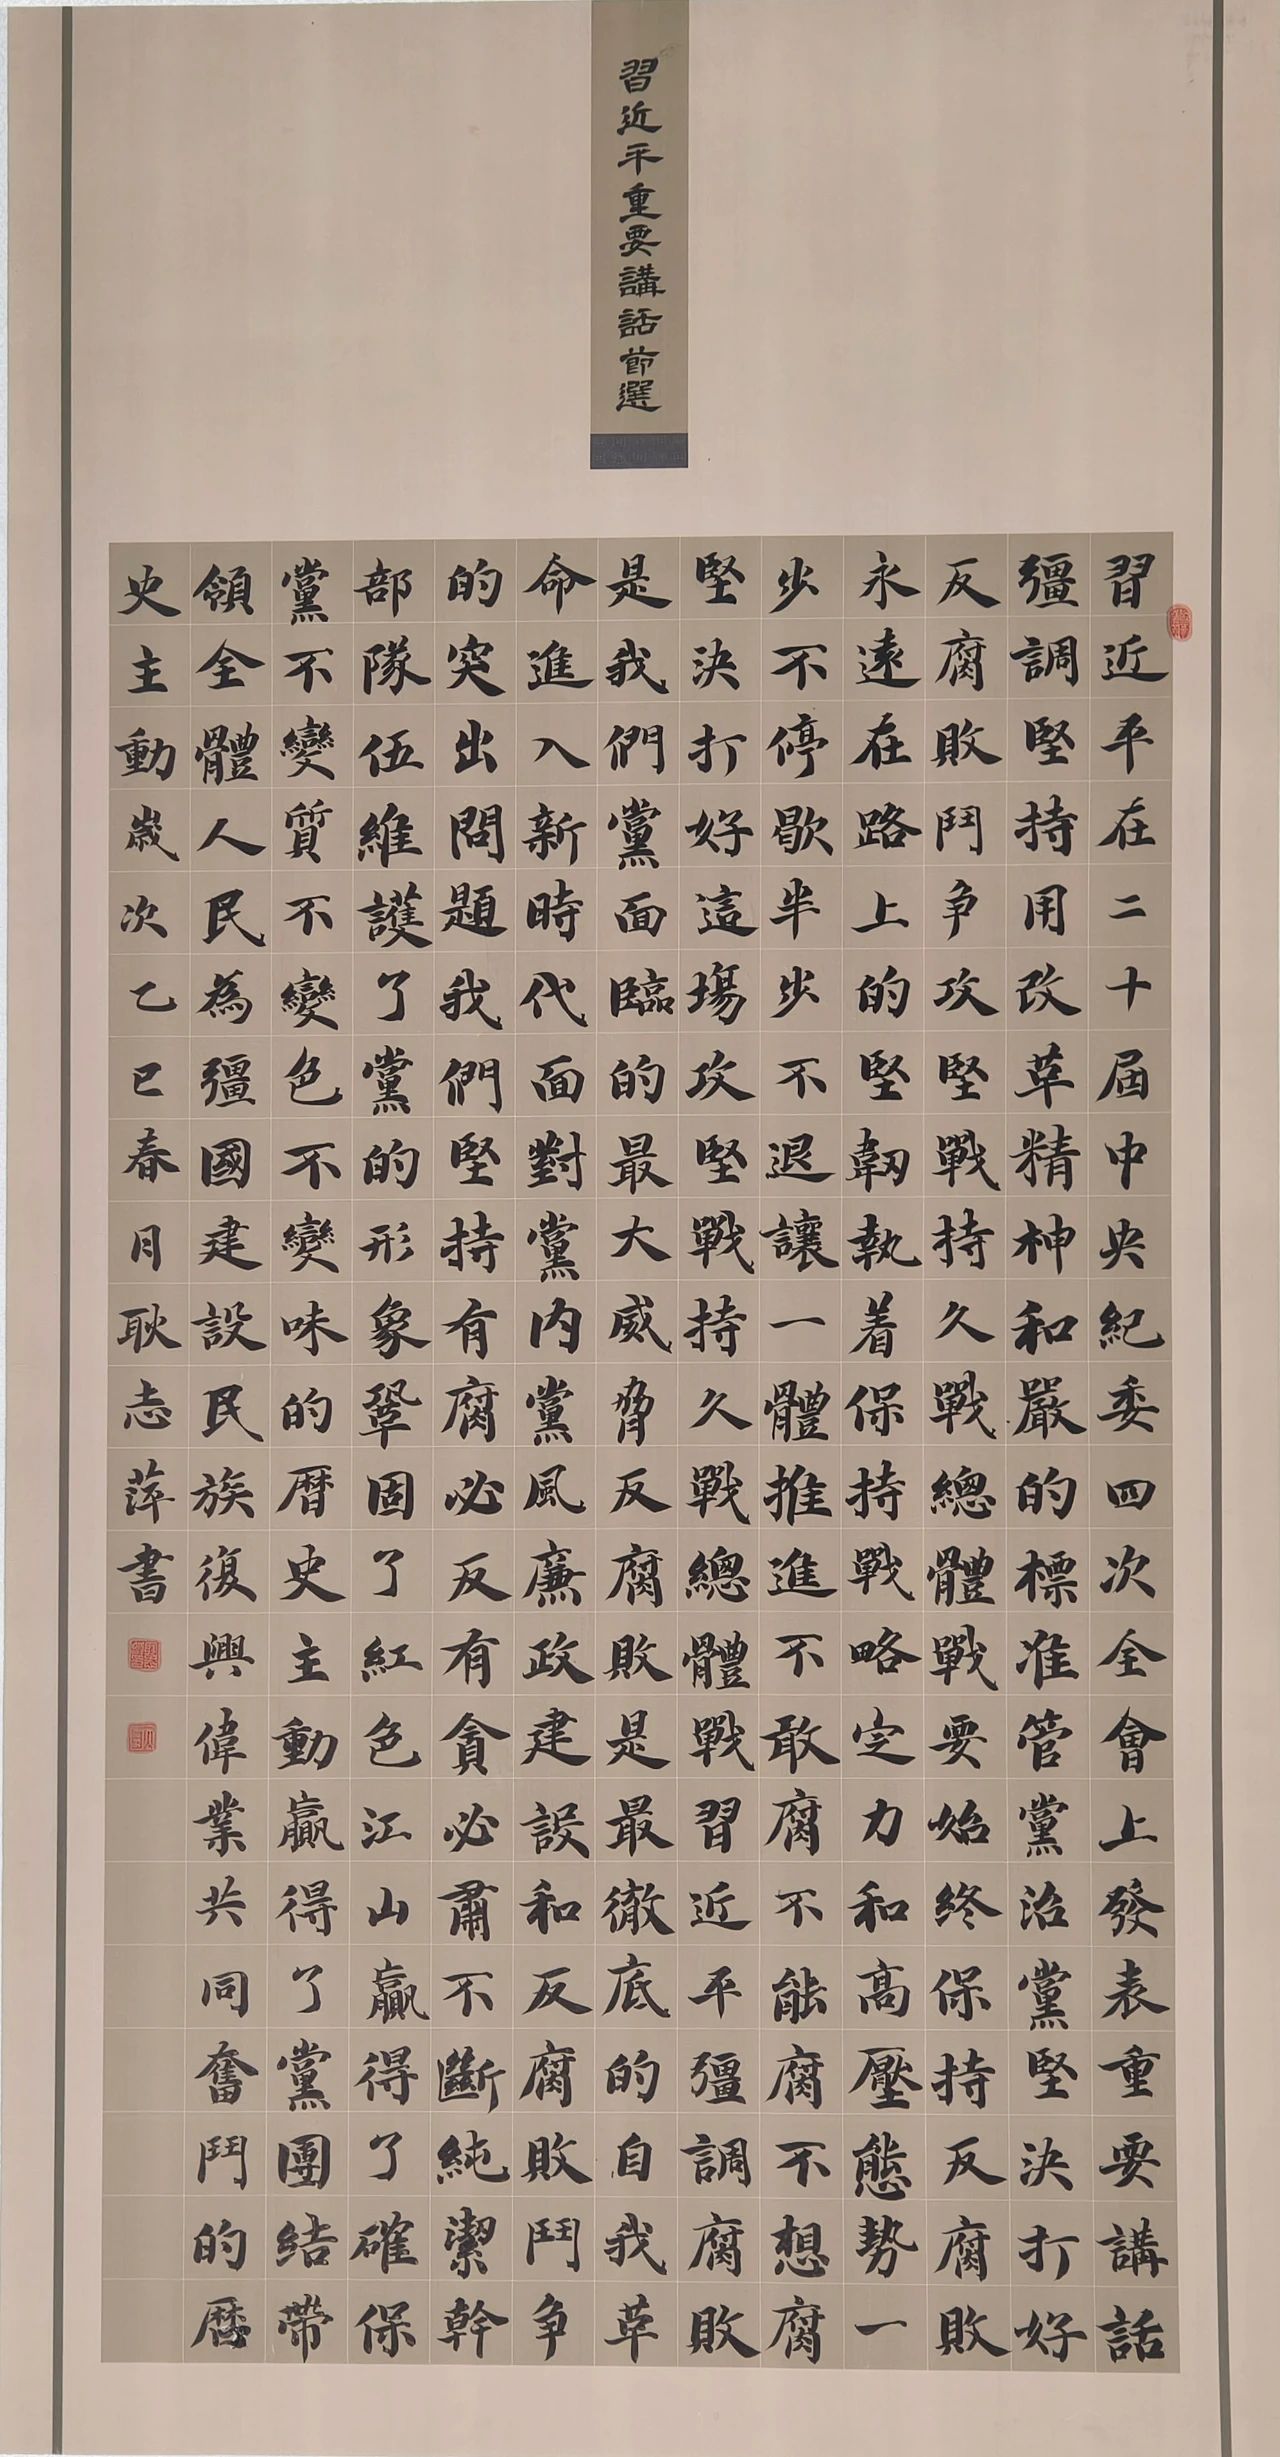 習近平重要講話節選
習近平在二十屆中央紀委四次全會上發表重要講話
彊調堅持用改革精神和嚴的標准管黨治黨堅決打好
反腐敗鬥争攻堅戰持久戰總體戰要始終保持反腐敗
永遠在路上的堅韌執着保持戰略定力和高壓態勢一
步不停歇半步不退讓一體推進不敢腐不能腐不想腐
堅決打好這場攻堅戰持久戰總體戰習近平彊調腐敗
是我們黨面臨的最大威脅反腐敗是最徹底的自我革
命進入新時代面對黨内黨風廉政建設和反腐敗鬥争
的突出問題我們堅持有腐必反有貪必肅不斷純潔幹
部隊伍維護了黨的形象鞏固了紅色江山贏得了確保
黨不變質不變色不變味的曆史主動贏得了黨團結帶
領全體人民為彊國建設民族復興偉業共同奮鬥的曆
史主動歲次乙巳春月耿志萍書